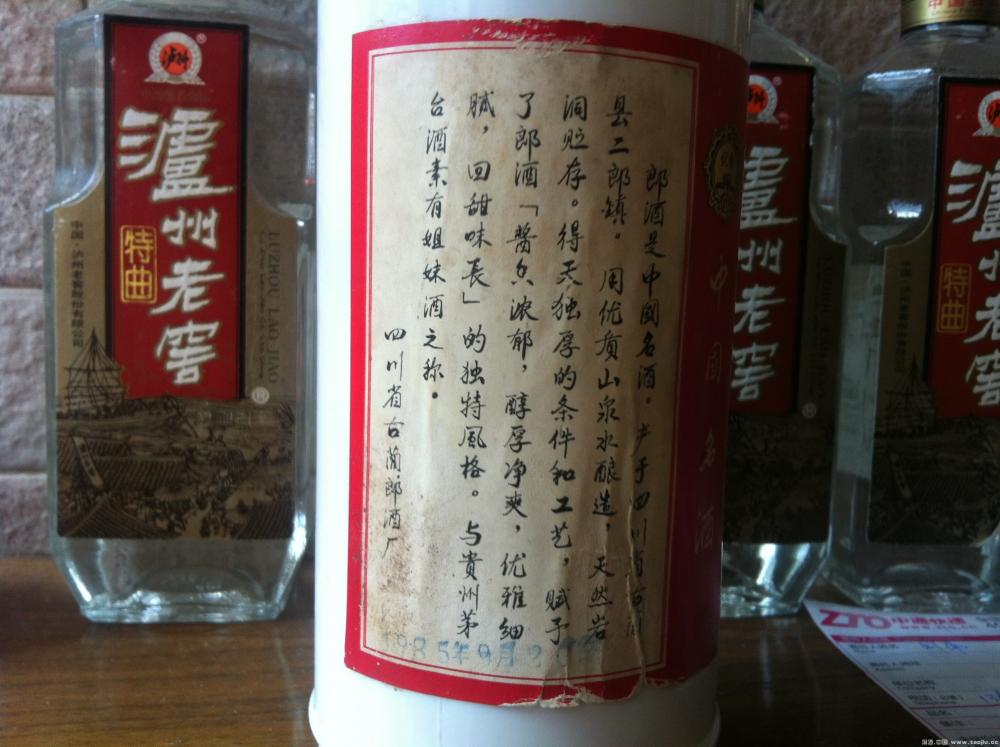 郎酒是中國名酒。产于四川省古蔺
县二郎镇。用优质山泉水酿造，天然岩
洞贮存。得天独厚的条件和工艺，赋予
了郎酒「醬香浓郁，醇厚净爽，优雅细
腻，回甜味长」的独特風格。与貴州茅
台酒素有姐妹酒之称。
四川省古蔺郎酒厂
1985年9月2
中国名酒
瀘州老窖
特曲
中国·泸州老窖股份有限公司
LUZHOU LAO JIAO
瀘州老窖
瀘州老窖
特曲
ZTO 中通快递